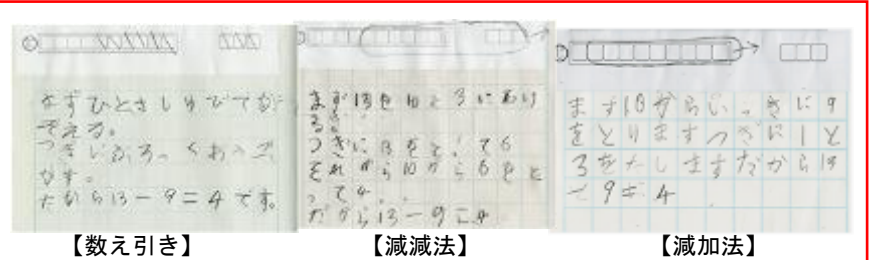 まずひとさしゆびでかぞえる。
だから13－9＝4です。
【数え引き】
まず13を10と3にわける。
つぎに
それから10から6をとって4。
だから13－9＝4
【減減法】
まず10からいっきに9
をとりますつぎに1と
3をたしますだから13
－9＝4
【減加法】